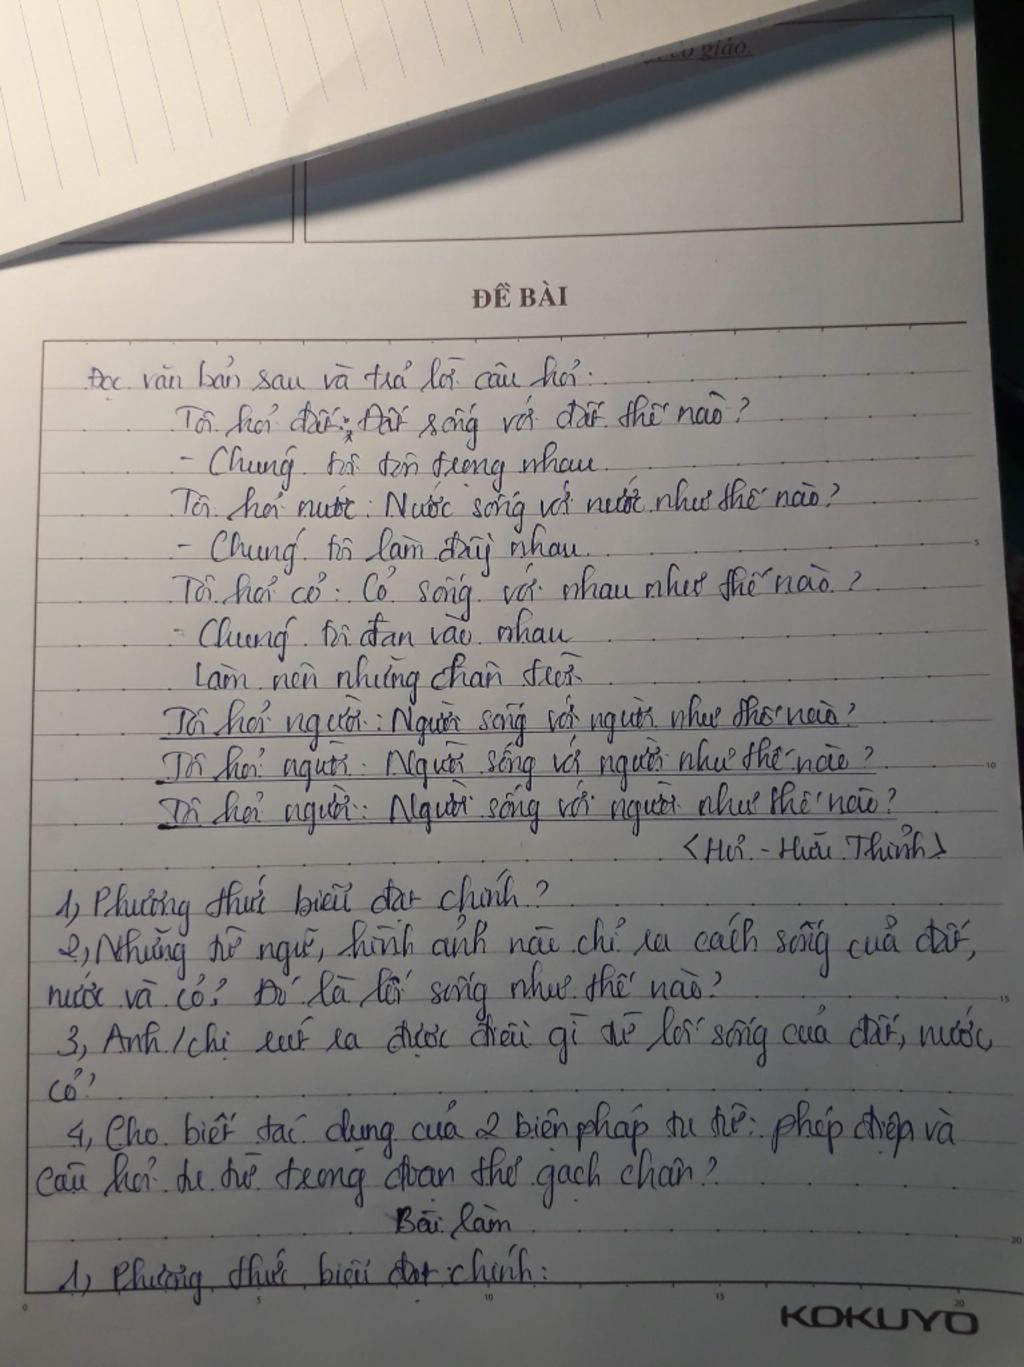 cô giáo.
ĐỀ BÀI
Đọc văn bản sau và trả lời câu hỏi:
Tôi hỏi đất: Đất sống với đất thế nào?
- Chúng tôi tôn trọng nhau
Tôi hỏi nước: Nước sống với nước như thế nào?
- Chúng tôi làm đầy nhau.
Tôi hỏi cỏ: Cỏ sống với nhau như thế nào?
- Chúng tôi đan vào nhau
Làm nên những chân trời
Tôi hỏi người: Người sống với người như thế nào?
Tôi hỏi người: Người sống với người như thế nào?
Tôi hỏi người: Người sống với người như thế nào?
<Hỏi - Hữu Thỉnh>
1, Phương thức biểu đạt chính?
2, Những từ ngữ, hình ảnh nào chỉ ra cách sống của đất,
nước và cỏ? Đó là lối sống như thế nào?
3, Anh/chị rút ra được điều gì từ lối sống của đất, nước,
cỏ?
4, Cho biết tác dụng của 2 biện pháp tu từ: phép điệp và
câu hỏi tu từ trong đoạn thơ gạch chân?
Bài làm
1, Phương thức biểu đạt chính:
KOKUYO